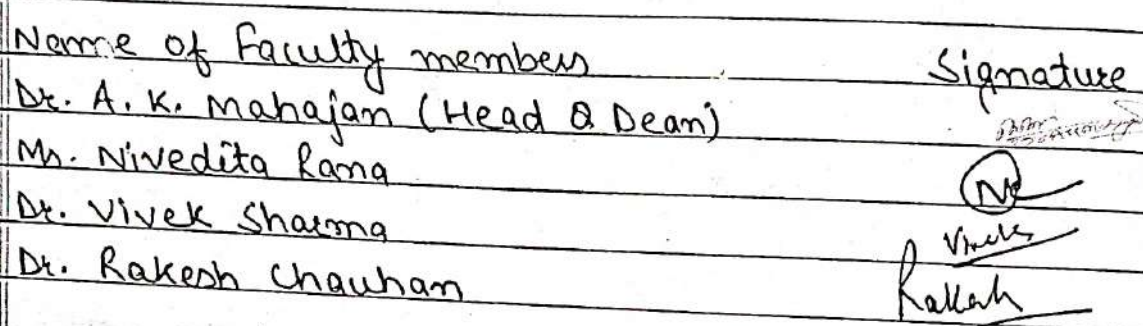 Name of Faculty members Signature
Dr. A. K. Mahajan (Head & Dean)
Ms. Nivedita Rana
Dr. Vivek Sharma Vivek
Dr. Rakesh Chauhan Rakesh